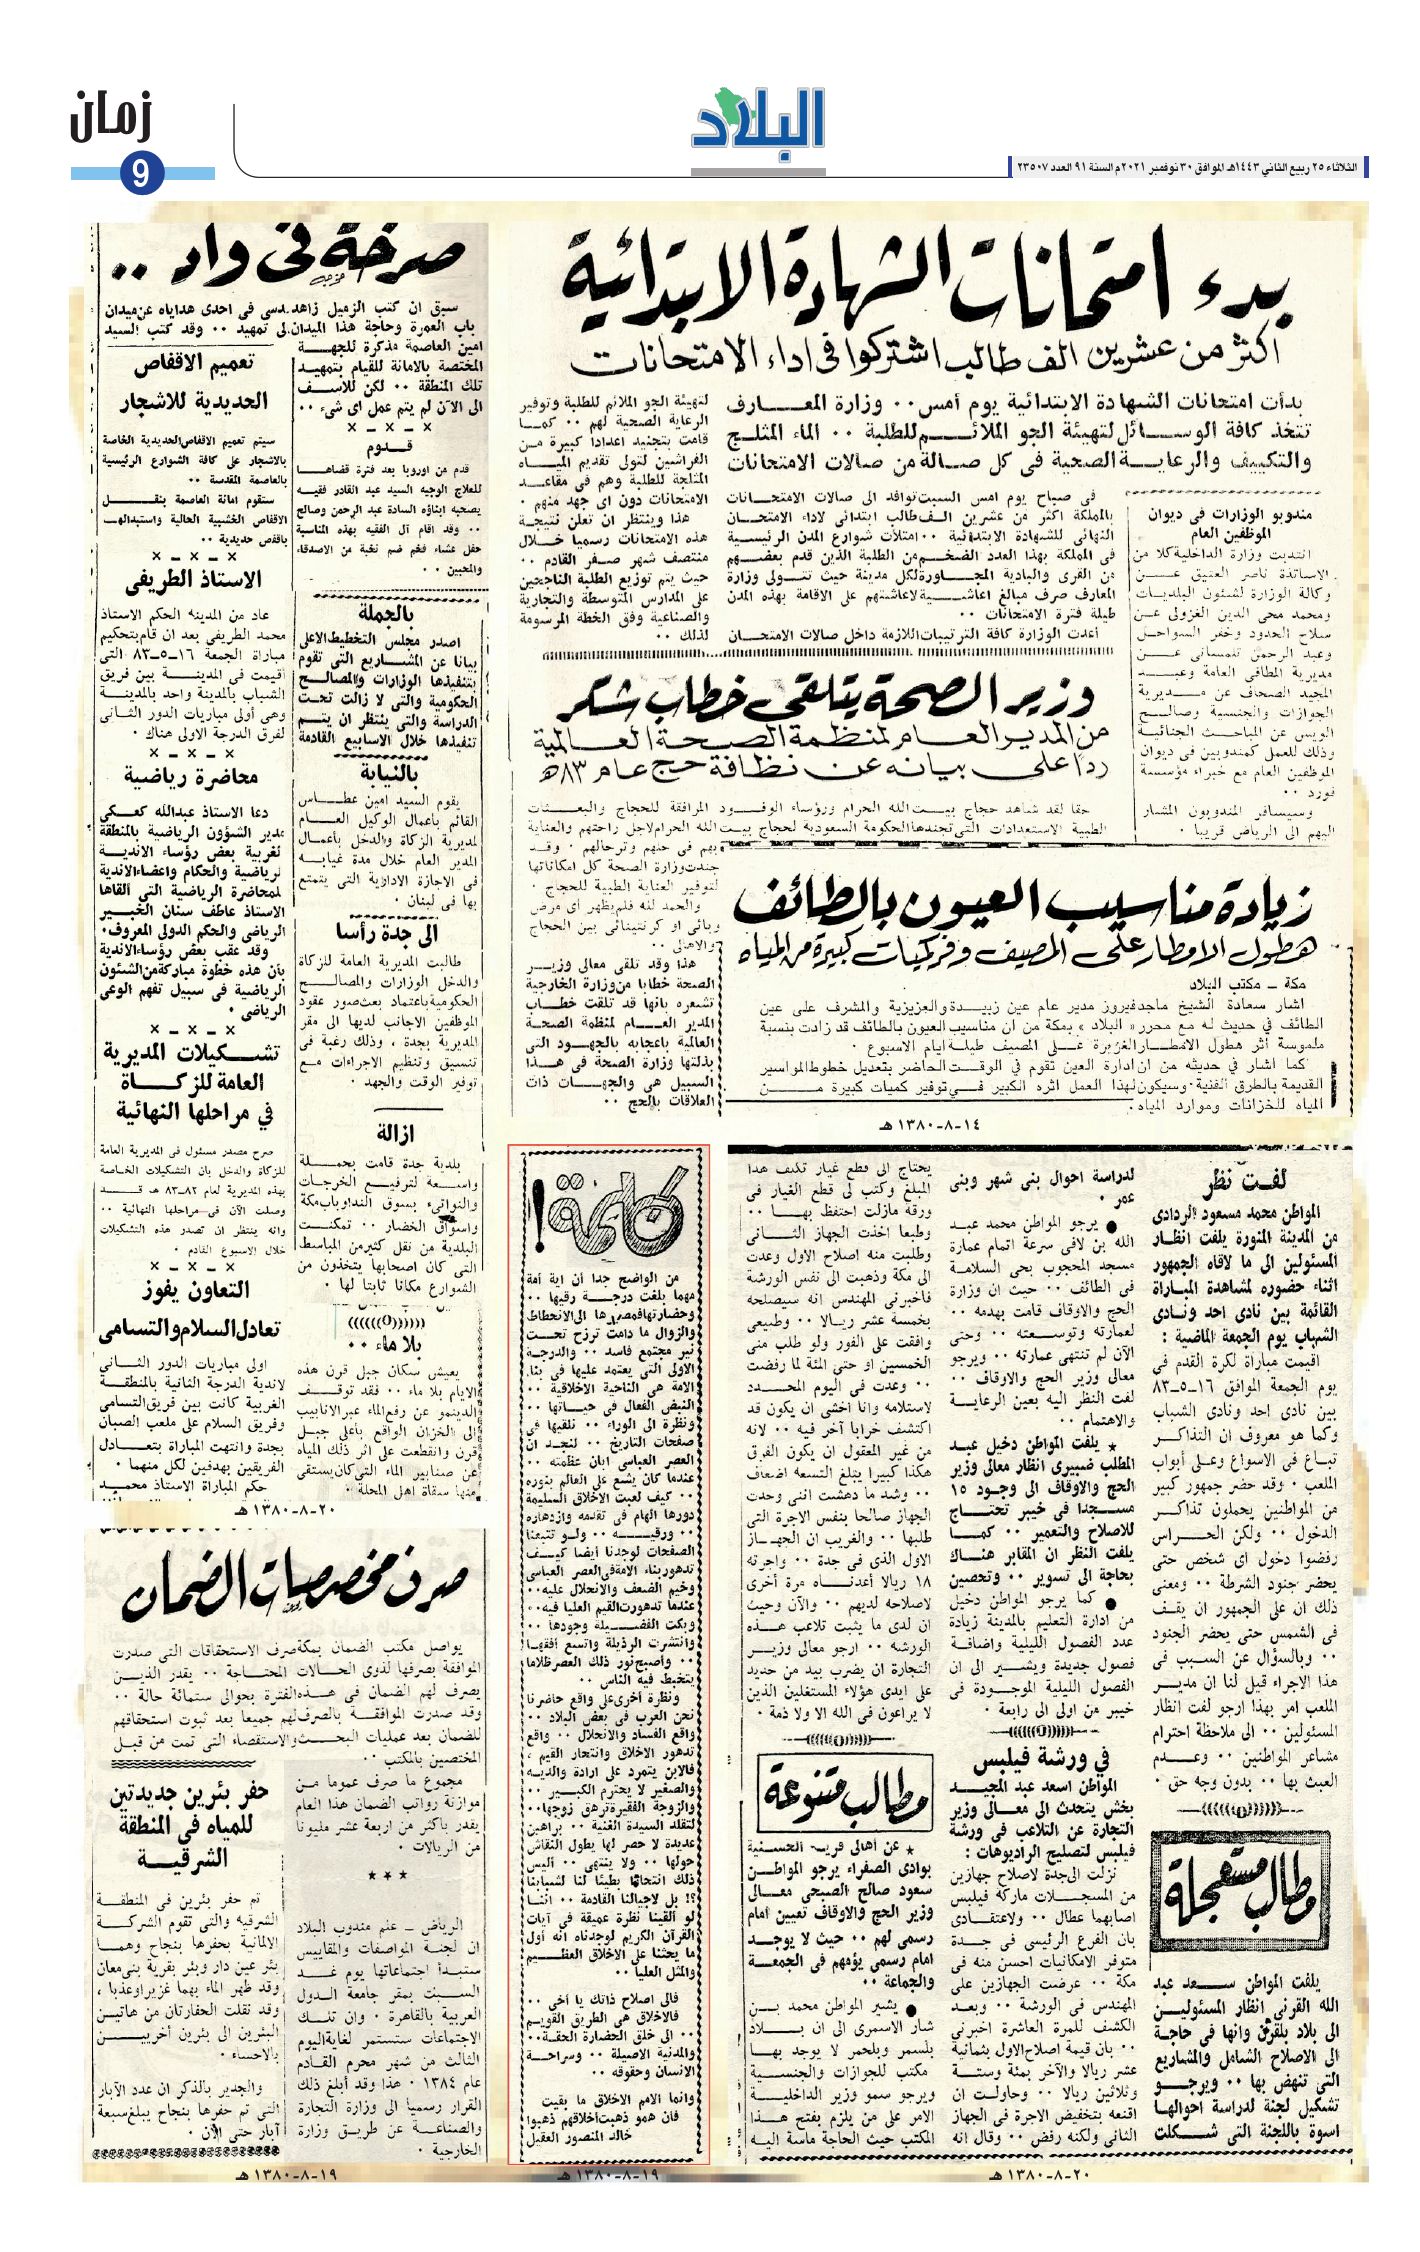 زمان
9
البلاد
الثلاثاء ٢٥ ربيع الثاني ١٤٤٣هـ الموافق ٣٠ نوفمبر ٢٠٢١م السنة ٩١ العدد ٢٣٥٠٧
بدء امتحانات الشهادة الابتدائية
اكثر من عشرين الف طالب اشتركوا فى اداء الامتحانات
بدأت امتحانات الشهادة الابتدائية يوم أمس ٠٠ وزارة المعارف
تتخذ كافة الوسائل لتهيئة الجو الملائم للطلبة ٠٠ الماء المثلج
والتكييف والرعاية الصحية فى كل صالة من صالات الامتحانات
فى صباح يوم امس السبت توافد الى صالات الامتحانات
بالمملكة اكثر من عشرين الف طالب ابتدائى لاداء الامتحان
النهائى للشهادة الابتدائية ٠٠ امتلأت شوارع المدن الرئيسية
فى المملكة بهذا العدد الضخم من الطلبة الذين قدم بعضهم
من القرى والبادية المجاورة لكل مدينة حيث تتولى وزارة
المعارف صرف مبالغ اعاشية لاعاشتهم على الاقامة بهذه المدن
طيلة فترة الامتحانات ٠٠
أعدت الوزارة كافة الترتيبات اللازمة داخل صالات الامتحان
لتهيئة الجو الملائم للطلبة وتوفير
الرعاية الصحية لهم ٠٠ كما
قامت بتجنيد اعدادا كبيرة من
الفراشين لتولى تقديم المياه
المثلجة للطلبة وهم فى مقاعد
الامتحانات دون اى جهد منهم ٠
هذا وينتظر ان تعلن نتيجة
هذه الامتحانات رسميا خلال
منتصف شهر صفر القادم ٠٠
حيث يتم توزيع الطلبة الناجحين
على المدارس المتوسطة والتجارية
والصناعية وفق الخطة المرسومة
لذلك ٠٠
مندوبو الوزارات فى ديوان
الموظفين العام
انتدبت وزارة الداخلية كلا من
الاساتذة ناصر العنيق عن
وكالة الوزارة لشئون البلديات
ومحمد محى الدين الغزولى عن
سلاح الحدود وخفر السواحل
وعبد الرحمن تلمسانى عن
مديرية المطافى العامة وعبد
المجيد الصحاف عن مديرية
الجوازات والجنسية وصالح
الويس عن المباحث الجنائية
وذلك للعمل كمندوبين فى ديوان
الموظفين العام مع خبراء مؤسسة
فورد ٠٠
وسيسافر المندوبون المشار
اليهم الى الرياض قريبا ٠
وزير الصحة يتلقى خطاب شكر
من المدير العام لمنظمة الصحة العالمية
ردا على بيانه عن نظافة حج عام ٨٣هـ
حقا لقد شاهد حجاج بيت الله الحرام ورؤساء الوفود المرافقة للحجاج والبعثات
الطبية الاستعدادات التى تجندها الحكومة السعودية لحجاج بيت الله الحرام لاجل راحتهم والعناية
بهم فى حلهم وترحالهم ٠ وقد
جندت وزارة الصحة كل امكاناتها
لتوفير العناية الطبية للحجاج ٠
والحمد لله فلم يظهر أى مرض
وبائى او كرنتينائى بين الحجاج
والاهالى ٠٠
هذا وقد تلقى معالى وزير
الصحة خطابا من وزارة الخارجية
تشعره بأنها قد تلقت خطاب
المدير العام لمنظمة الصحة
العالمية باعجابه بالجهود التى
بذلتها وزارة الصحة فى هذا
السبيل هى والجهات ذات
العلاقات بالحج ٠٠
زيادة مناسيب العيون بالطائف
هطول الامطار على المصيف وفر كميات كبيرة من المياه
مكة - مكتب البلاد
اشار سعادة الشيخ ماجد فيروز مدير عام عين زبيدة والعزيزية والمشرف على عين
الطائف في حديث له مع محرر « البلاد » بمكة من ان مناسيب العيون بالطائف قد زادت بنسبة
ملموسة أثر هطول الامطار الغزيرة على المصيف طيلة ايام الاسبوع ٠
كما اشار في حديثه من ان ادارة العين تقوم في الوقت الحاضر بتعديل خطوط المواسير
القديمة بالطرق الفنية ٠ وسيكون لهذا العمل اثره الكبير في توفير كميات كبيرة من
المياه للخزانات وموارد المياه ٠
١٤-٨-١٣٨٠ هـ
صرخة فى واد ٠٠
سبق ان كتب الزميل زاهد قدسى فى احدى هداياه عن ميدان
باب العمرة وحاجة هذا الميدان الى تمهيد ٠٠ وقد كتب السيد
امين العاصمة مذكرة للجهة
المختصة بالامانة للقيام بتمهيد
تلك المنطقة ٠٠ لكن للاسف
الى الآن لم يتم عمل اى شىء ٠٠
× - × - ×
قدوم
قدم من اوروبا بعد فترة قضاها
للعلاج الوجيه السيد عبد القادر فقيه
يصحبه ابناؤه السادة عبد الرحمن وصالح
٠٠ وقد اقام آل الفقيه بهذه المناسبة
حفل عشاء فخم ضم نخبة من الاصدقاء
والمحبين ٠٠
بالجملة
اصدر مجلس التخطيط الاعلى
بيانا عن المشاريع التى تقوم
بتنفيذها الوزارات والمصالح
الحكومية والتى لا زالت تحت
الدراسة والتى ينتظر ان يتم
تنفيذها خلال الاسابيع القادمة
بالنيابة
يقوم السيد امين عطاس
القائم بأعمال الوكيل العام
لمديرية الزكاة والدخل بأعمال
المدير العام خلال مدة غيابه
فى الاجازة الادارية التى يتمتع
بها فى لبنان ٠
الى جدة رأسا
طالبت المديرية العامة للزكاة
والدخل الوزارات والمصالح
الحكومية باعتماد بعث صور عقود
الموظفين الاجانب لديها الى مقر
المديرية بجدة ، وذلك رغبة فى
تنسيق وتنظيم الاجراءات مع
توفير الوقت والجهد ٠
ازالة
بلدية جدة قامت بحملة
واسعة لترفيع الخرجات
والنواتىء بسوق الندا وباب مكة
واسواق الخضار ٠٠ تمكنت
البلدية من نقل كثير من المباسط
التى كان اصحابها يتخذون من
الشوارع مكانا ثابتا لها ٠
بلا ماء ٠٠
يعيش سكان جبل قرن هذه
الايام بلا ماء ٠٠ فقد توقف
الدينمو عن رفع الماء عبر الانابيب
الى الخزان الواقع بأعلى جبل
قرن وانقطعت على اثر ذلك المياه
عن صنابير الماء التى كان يستقى
منها سقاة اهل المحلة ٠
تعميم الاقفاص
الحديدية للاشجار
سيتم تعميم الاقفاص الحديدية الخاصة
بالاشجار على كافة الشوارع الرئيسية
بالعاصمة المقدسة ٠٠
ستقوم امانة العاصمة بنقل
الاقفاص الخشبية الحالية واستبدالها
بأقفص حديدية ٠٠
× - × - ×
الاستاذ الطريفى
عاد من المدينة الحكم الاستاذ
محمد الطريفى بعد ان قام بتحكيم
مباراة الجمعة ١٦-٥-٨٣ التى
أقيمت فى المدينة بين فريق
الشباب بالمدينة واحد بالمدينة
وهى أولى مباريات الدور الثانى
لفرق الدرجة الاولى هناك ٠
× - × - ×
محاضرة رياضية
دعا الاستاذ عبدالله كعكى
مدير الشؤون الرياضية بالمنطقة
الغربية بعض رؤساء الاندية
الرياضية والحكام واعضاء الاندية
لمحاضرة الرياضية التى ألقاها
الاستاذ عاطف سنان الخبير
الرياضى والحكم الدولى المعروف ٠
وقد عقب بعض رؤساء الاندية
بأن هذه خطوة مباركة من الشئون
الرياضية فى سبيل تفهم الوعى
الرياضى ٠
× - × - ×
تشكيلات المديرية
العامة للزكاة
في مراحلها النهائية
صرح مصدر مسئول فى المديرية العامة
للزكاة والدخل بأن التشكيلات الخاصة
بهذه المديرية لعام ٨٢-٨٣ هـ قد
وصلت الآن فى مراحلها النهائية ٠٠
وانه ينتظر ان تصدر هذه التشكيلات
خلال الاسبوع القادم ٠
× - × - ×
التعاون يفوز
تعادل السلام والتسامى
اولى مباريات الدور الثانى
لاندية الدرجة الثانية بالمنطقة
الغربية كانت بين فريق التسامى
وفريق السلام على ملعب الصبان
بجدة وانتهت المباراة بتعادل
الفريقين بهدفين لكل منهما ٠
حكم المباراة الاستاذ محمد
٢٠-٨-١٣٨٠ هـ
صرف مخصصات الضمان
يواصل مكتب الضمان بمكة صرف الاستحقاقات التى صدرت
الموافقة بصرفها لذوى الحالات المحتاجة ٠٠ يقدر الذين
يصرف لهم الضمان فى هذه الفترة بحوالى ستمائة حالة ٠٠
وقد صدرت الموافقة بالصرف لهم جميعا بعد ثبوت استحقاقهم
للضمان بعد عمليات البحث والاستقصاء التى تمت من قبل
المختصين بالمكتب ٠٠
مجموع ما صرف عموما من
موازنة رواتب الضمان هذا العام
يقدر بأكثر من اربعة عشر مليونا
من الريالات ٠
★ ★ ★
الرياض - علم مندوب البلاد
ان لجنة المواصفات والمقاييس
ستبدأ اجتماعاتها يوم غد
السبت بمقر جامعة الدول
العربية بالقاهرة ٠ وان تلك
الاجتماعات ستستمر لغاية اليوم
الثالث من شهر محرم القادم
عام ١٣٨٤ ٠ هذا وقد أبلغ ذلك
القرار رسميا الى وزارة التجارة
والصناعة عن طريق وزارة
الخارجية ٠
حفر بئرين جديدتين
للمياه فى المنطقة
الشرقية
تم حفر بئرين فى المنطقة
الشرقية والتى تقوم الشركة
الالمانية بحفرها بنجاح وهما
بئر عين دار وبئر بقرية بنى معان
وقد ظهر الماء بهما غزيرا وعذبا ،
وقد نقلت الحفارتان من هاتين
البئرين الى بئرين أخريين
بالاحساء ٠
والجدير بالذكر ان عدد الآبار
التى تم حفرها بنجاح يبلغ سبعة
آبار حتى الآن ٠
١٩-٨-١٣٨٠ هـ
كلمة !
من الواضح جدا أن أية أمة
مهما بلغت درجة رقيها ٠٠
وحضارتها فمصيرها الى الانحطاط
والزوال ما دامت ترزح تحت
نير مجتمع فاسد ٠٠ والدرجة
الاولى التى يعتمد عليها فى بناء
الأمة هى الناحية الاخلاقية ٠٠
النبض الفعال فى حياتها ٠٠
ونظرة الى الوراء ٠٠ نلقيها فى
صفحات التاريخ ٠٠ لنجد ان
العصر العباسى ابان عظمته ٠٠
عندما كان يشع على العالم بنوره
٠٠ كيف لعبت الاخلاق السليمة
دورها الهام فى تقدمه وازدهاره
٠٠ ورقيه ٠٠ ولو تتبعنا
الصفحات لوجدنا أيضا كيف
تدهور بناء الامة فى العصر العباسى
وخيم الضعف والانحلال عليه ٠٠
عندما تدهورت القيم العليا فيه ٠٠
وبكت الفضيلة وجودها ٠٠
وانتشرت الرذيلة واتسع أفقها
٠٠ وأصبح نور ذلك العصر ظلاما
يتخبط فيه الناس ٠٠
ونظرة أخرى على واقع حاضرنا
نحن العرب فى بعض البلاد ٠٠
واقع الفساد والانحلال ٠٠ واقع
تدهور الاخلاق وانتحار القيم ،
فالابن يتمرد على ارادة والديه
والصغير لا يحترم الكبير ٠٠
والزوجة الفقيرة ترهق زوجها ٠٠
لتقلد السيدة الغنية ٠٠ براهين
عديدة لا حصر لها يطول النقاش
حولها ٠٠ ولا ينتهى ٠٠ أليس
ذلك انتحارا بطيئا لنا لشبابنا
؟! بل لاجيالنا القادمة ٠٠ اننا
لو ألقينا نظرة عميقة فى آيات
القرآن الكريم لوجدناه انه أول
ما يحثنا على الاخلاق العظيم
والمثل العليا ٠٠
فالى اصلاح ذاتك يا أخى ٠٠
فالاخلاق هى الطريق القويم
٠٠ الى خلق الحضارة الحقة ٠٠
والمدنية الاصيلة ٠٠ وسراحة
الانسان وحقوقه ٠٠
وانما الامم الاخلاق ما بقيت
فان همو ذهبت أخلاقهم ذهبوا
خالد المنصور العقيل
١٩-٨-١٣٨٠ هـ
لفت نظر
المواطن محمد مسعود الردادى
من المدينة المنورة يلفت انظار
المسئولين الى ما لاقاه الجمهور
اثناء حضوره لمشاهدة المباراة
القائمة بين نادى احد ونادى
الشباب يوم الجمعة الماضية :
اقيمت مباراة لكرة القدم فى
يوم الجمعة الموافق ١٦-٥-٨٣
بين نادى احد ونادى الشباب
وكما هو معروف ان التذاكر
تباع فى الاسواق وعلى أبواب
الملعب ٠ وقد حضر جمهور كبير
من المواطنين يحملون تذاكر
الدخول ٠٠ ولكن الحراس
رفضوا دخول أى شخص حتى
يحضر جنود الشرطة ٠٠ ومعنى
ذلك ان على الجمهور ان يقف
فى الشمس حتى يحضر الجنود
٠٠ وبالسؤال عن السبب فى
هذا الاجراء قيل لنا ان مدير
الملعب امر بهذا ارجو لفت انظار
المسئولين ٠٠ الى ملاحظة احترام
مشاعر المواطنين ٠٠ وعدم
العبث بها ٠٠ بدون وجه حق ٠
مطالب مستعجلة
يلفت المواطن سعد عبد
الله القرنى انظار المسئولين
الى بلاد بلقرن وانها فى حاجة
الى الاصلاح الشامل والمشاريع
التى تنهض بها ٠٠ ويرجو
تشكيل لجنة لدراسة احوالها
اسوة باللجنة التى شكلت
لدراسة احوال بنى شهر وبنى
عمر ٠
● يرجو المواطن محمد عبد
الله بن لافى سرعة اتمام عمارة
مسجد المحجوب بحى السلامة
فى الطائف ٠٠ حيث ان وزارة
الحج والاوقاف قامت بهدمه ٠٠
لعمارته وتوسعته ٠٠ وحتى
الآن لم تنتهى عمارته ٠٠ ويرجو
معالى وزير الحج والاوقاف ٠٠
لفت النظر اليه بعين الرعاية
والاهتمام ٠٠
★ يلفت المواطن دخيل عبد
المطلب ضبيرى انظار معالى وزير
الحج والاوقاف الى وجود ١٥
مسجدا فى خيبر تحتاج
للاصلاح والتعمير ٠٠ كما
يلفت النظر ان المقابر هناك
بحاجة الى تسوير ٠٠ وتحصين
● كما يرجو المواطن دخيل
من ادارة التعليم بالمدينة زيادة
عدد الفصول الليلية واضافة
فصول جديدة ويشير الى ان
الفصول الليلية الموجودة فى
خيبر من اولى الى رابعة ٠
في ورشة فيلبس
المواطن اسعد عبد المجيد
بخش يتحدث الى معالى وزير
التجارة عن التلاعب فى ورشة
فيلبس لتصليح الراديوهات :
نزلت الى جدة لاصلاح جهازين
من المسجلات ماركة فيلبس
اصابهما عطال ٠٠ ولاعتقادى
بان الفرع الرئيسى فى جدة
متوفر الامكانيات احسن منه فى
مكة ٠٠ عرضت الجهازين على
المهندس فى الورشة ٠٠ وبعد
الكشف للمرة العاشرة اخبرنى
٠٠ بان قيمة اصلاح الاول بثمانية
عشر ريالا والآخر بمئة وستة
وثلاثين ريالا ٠٠ وحاولت ان
اقنعه بتخفيض الاجرة فى الجهاز
الثانى ولكنه رفض ٠٠ وقال انه
يحتاج الى قطع غيار تكلف هذا
المبلغ وكتب لى قطع الغيار فى
ورقة مازلت احتفظ بها ٠٠
وطبعا اخذت الجهاز الثانى
وطلبت منه اصلاح الاول وعدت
الى مكة وذهبت الى نفس الورشة
فاخبرنى المهندس انه سيصلحه
بخمسة عشر ريالا ٠٠ وطبيعى
وافقت على الفور ولو طلب منى
الخمسين او حتى المئة لما رفضت
٠٠ وعدت فى اليوم المحدد
لاستلامه وانا اخشى ان يكون قد
اكتشف خرابا آخر فيه ٠٠ لانه
من غير المعقول ان يكون الفرق
هكذا كبيرا يبلغ التسعة اضعاف
٠٠ وشد ما دهشت اننى وجدت
الجهاز صالحا بنفس الاجرة التى
طلبها ٠٠ والغريب ان الجهاز
الاول الذى فى جدة ٠٠ واجرته
١٨ ريالا أعدناه مرة أخرى
لاصلاحه لديهم ٠٠ والآن وحيث
ان لدى ما يثبت تلاعب هذه
الورشه ٠٠ ارجو معالى وزير
التجارة ان يضرب بيد من حديد
على ايدى هؤلاء المستغلين الذين
لا يراعون فى الله الا ولا ذمة ٠
مطالب متنوعة
★ عن اهالى قرية الحسنية
بوادى الصفراء يرجو المواطن
سعود صالح الصبحى معالى
وزير الحج والاوقاف تعيين امام
رسمى لهم ٠٠ حيث لا يوجد
امام رسمى يؤمهم فى الجمعة
والجماعة ٠٠
● يشير المواطن محمد بن
شار الاسمرى الى ان بلاد
بلسمر وبلحمر لا يوجد بها
مكتب للجوازات والجنسية
ويرجو سمو وزير الداخلية
الامر على من يلزم بفتح هذا
المكتب حيث الحاجة ماسة اليه
٢٠-٨-١٣٨٠ هـ